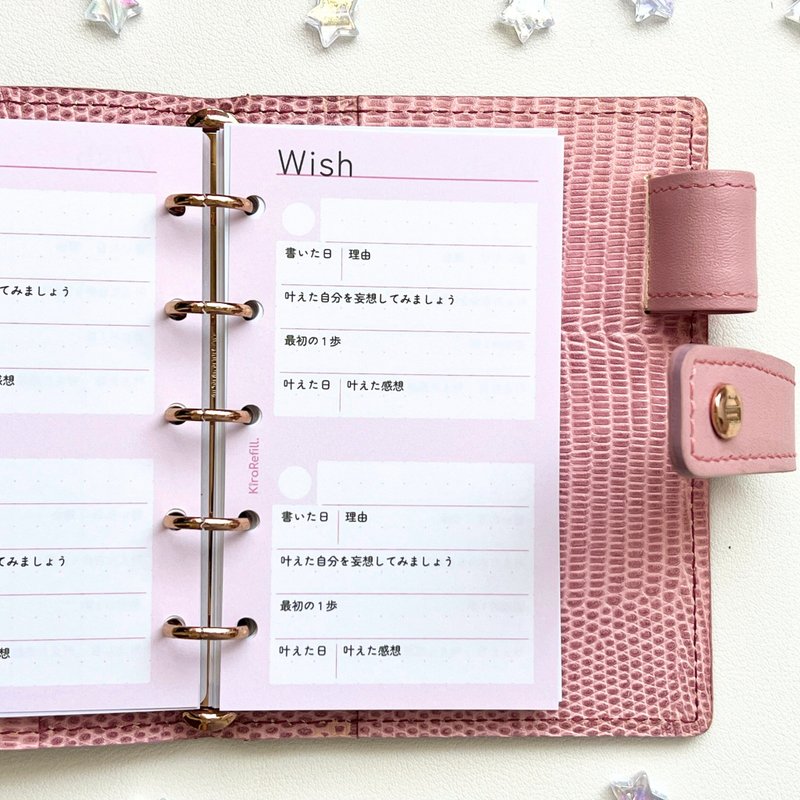 Wish
書いた日 理由
叶えた自分を妄想してみましょう
最初の1歩
叶えた日 叶えた感想
KiroRefill.
書いた日 理由
叶えた自分を妄想してみましょう
最初の1歩
叶えた日 叶えた感想
てみましょう
感想
てみましょう
想